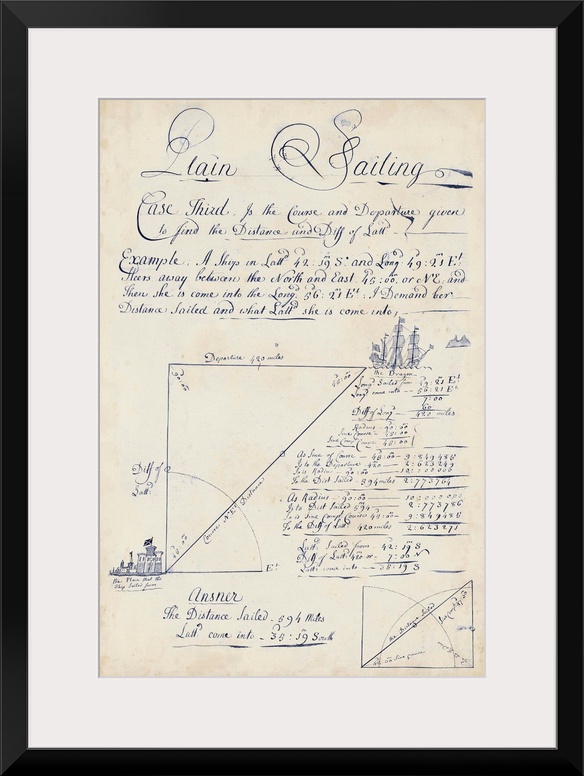 Plain Sailing
Case Third. Is the Course and Departure given
to find the Distance and Diff of Latt.d
Example. A Ship in Latt.d 42:19 S.o and Long.d 49:21 E.t
Steers away between the North and East 45:00, or NE, and
then she is come into the Long.d 56:21 E.t: I Demand her
Distance Sailed and what Latt.d she is come into,
Departure 420 miles
90:00
45:00
the Dragon
Long.d Sailed from 49:21 E.t
Long.d come into 56:21 E.t
7:00
60
Diff of Long.d 420 miles
Radius 90:00
Sine Course 45:00
Sine Comp Course 45:00
As Sine of Course 45:00 9:849485
Is to the Departure 420 2:623249
So is Radius 90:00 10:000000
To the Dist Sailed 594 miles 2:773764
As Radius 90:00 10:000000
Is to Dist Sailed 594 2:773786
So is Sine Comp Course 45:00 9:849485
To the Diff of Latt 420 miles 2:623271
Latt.d Sailed from 42:19 S
Diff of Latt.d 420 or 7:00 N
Latt.d come into 35:19 S
Diff of
Latt.d
Course NE Distance
45:00
E.t
the Place that the
Ship Sailed from
Answer
The Distance Sailed 594 Miles
Latt.d come into 35:19 South
the Distance Sailed
45:00 Sine Course